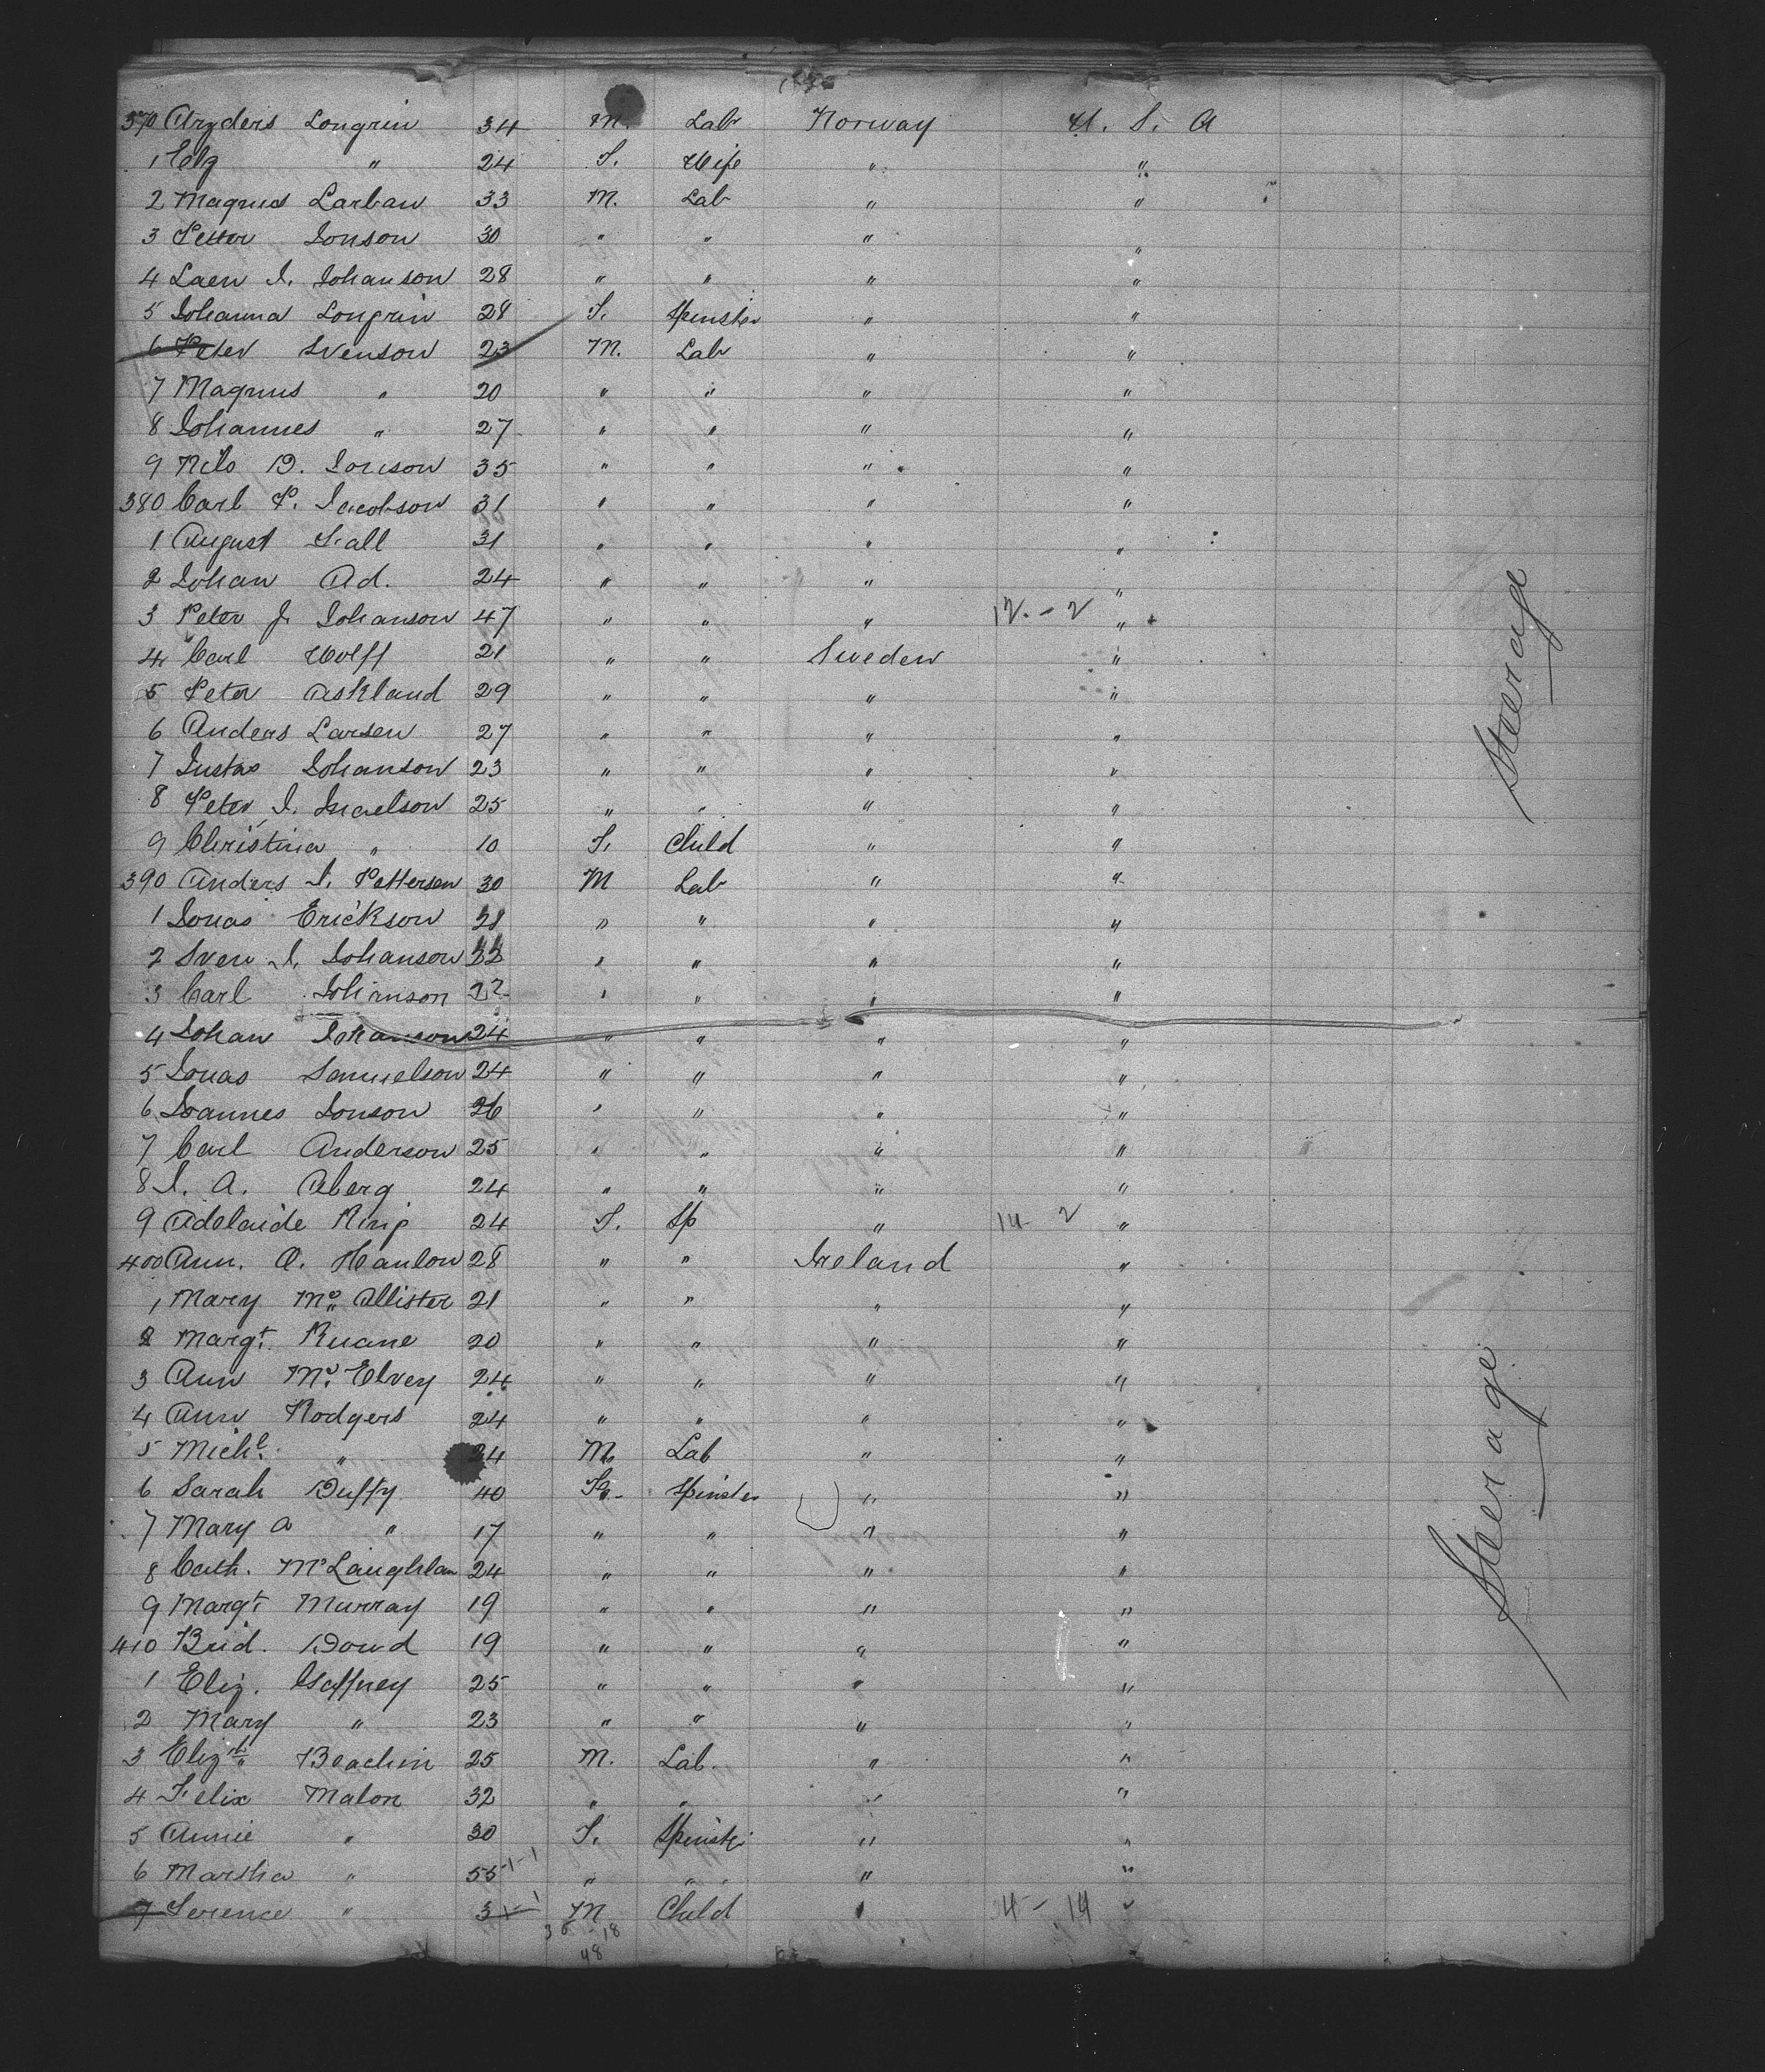 370 Anders Longrin 34 M. Lab Norway U. S. A
1 Elz " 24 F. Wife " "
2 Magnus Larban 33 M. Lab " "
3 Petter Jonson 30 " " " "
4 Laen J. Johanson 28 " " " "
5 Johanna Longrin 28 F. Spinster " "
6 Peter Svenson 23 M. Lab " "
7 Magnus " 20 " " " "
8 Johannes " 27 " " " "
9 Nils B. Jonson 35 " " " "
380 Carl P. Jacobson 31 " " " "
1 August Fall 31 " " " "
2 Johan Ad. 24 " " " "
3 Peter J. Johanson 47 " " " 12 - 2 "
4 Carl Wolff 21 " " Sweden "
5 Peter Askland 29 " " " "
6 Anders Larsen 27 " " " "
7 Gustas Johanson 23 " " " "
8 Peter J. 25 " " " "
9 Christina " 10 F. Child " "
390 Anders J. Pettersen 30 M Lab " "
1 Jonas Erickson 28 " " " "
2 Sven J. Johanson " " " "
3 Carl Johanson 22 " " " "
4 Johan Johanson 24 " " " "
5 Jonas Samuelson 24 " " " "
6 Joannes Jonson 26 " " " "
7 Carl Anderson 25 " " " "
8 J. A. Aberg 24 " " " "
9 Adelaide Ring 24 F. Sp " 14 2 "
400 Ann. O. Hanlon 28 " " Ireland "
1 Mary Mc Allister 21 " " " "
2 Margt. Ruane 20 " " " "
3 Ann Mc. Elvey 24 " " " "
4 Ann Rodgers 24 " " " "
5 Michl. " 24 M. Lab " "
6 Sarah Duffy 40 F. Spinster " "
7 Mary A " 17 " " " "
8 Cath. McLaughlan 24 " " " "
9 Margt Murray 19 " " " "
410 Brid. Dowd 19 " " " "
1 Eliz. Gaffney 25 " " " "
2 Mary " 23 " " " "
3 Elizth Beachin 25 M. Lab. " "
4 Felix Malon 32 " " " "
5 Annie " 30 F. Spinster " "
6 Martha " 55 1-1 " " " "
7 Terence " 3 1-1 M Child " 4 - 14 "
30 - 18
48
Steerage
Steerage